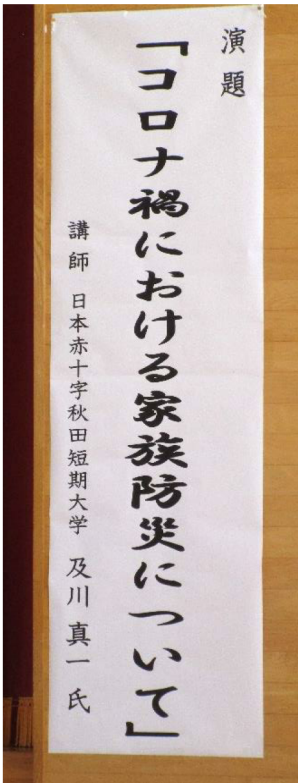 演題
「コロナ禍における家族防災について」
講師 日本赤十字秋田短期大学 及川真一氏